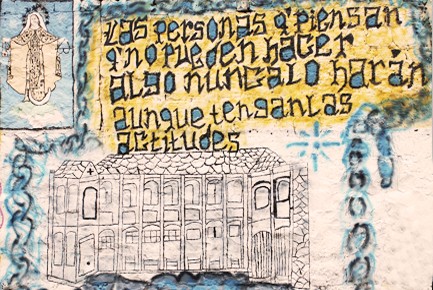 Las personas q'piensan
q'no pueden hacer
algo nunca lo harán
aunque tengan las
actitudes